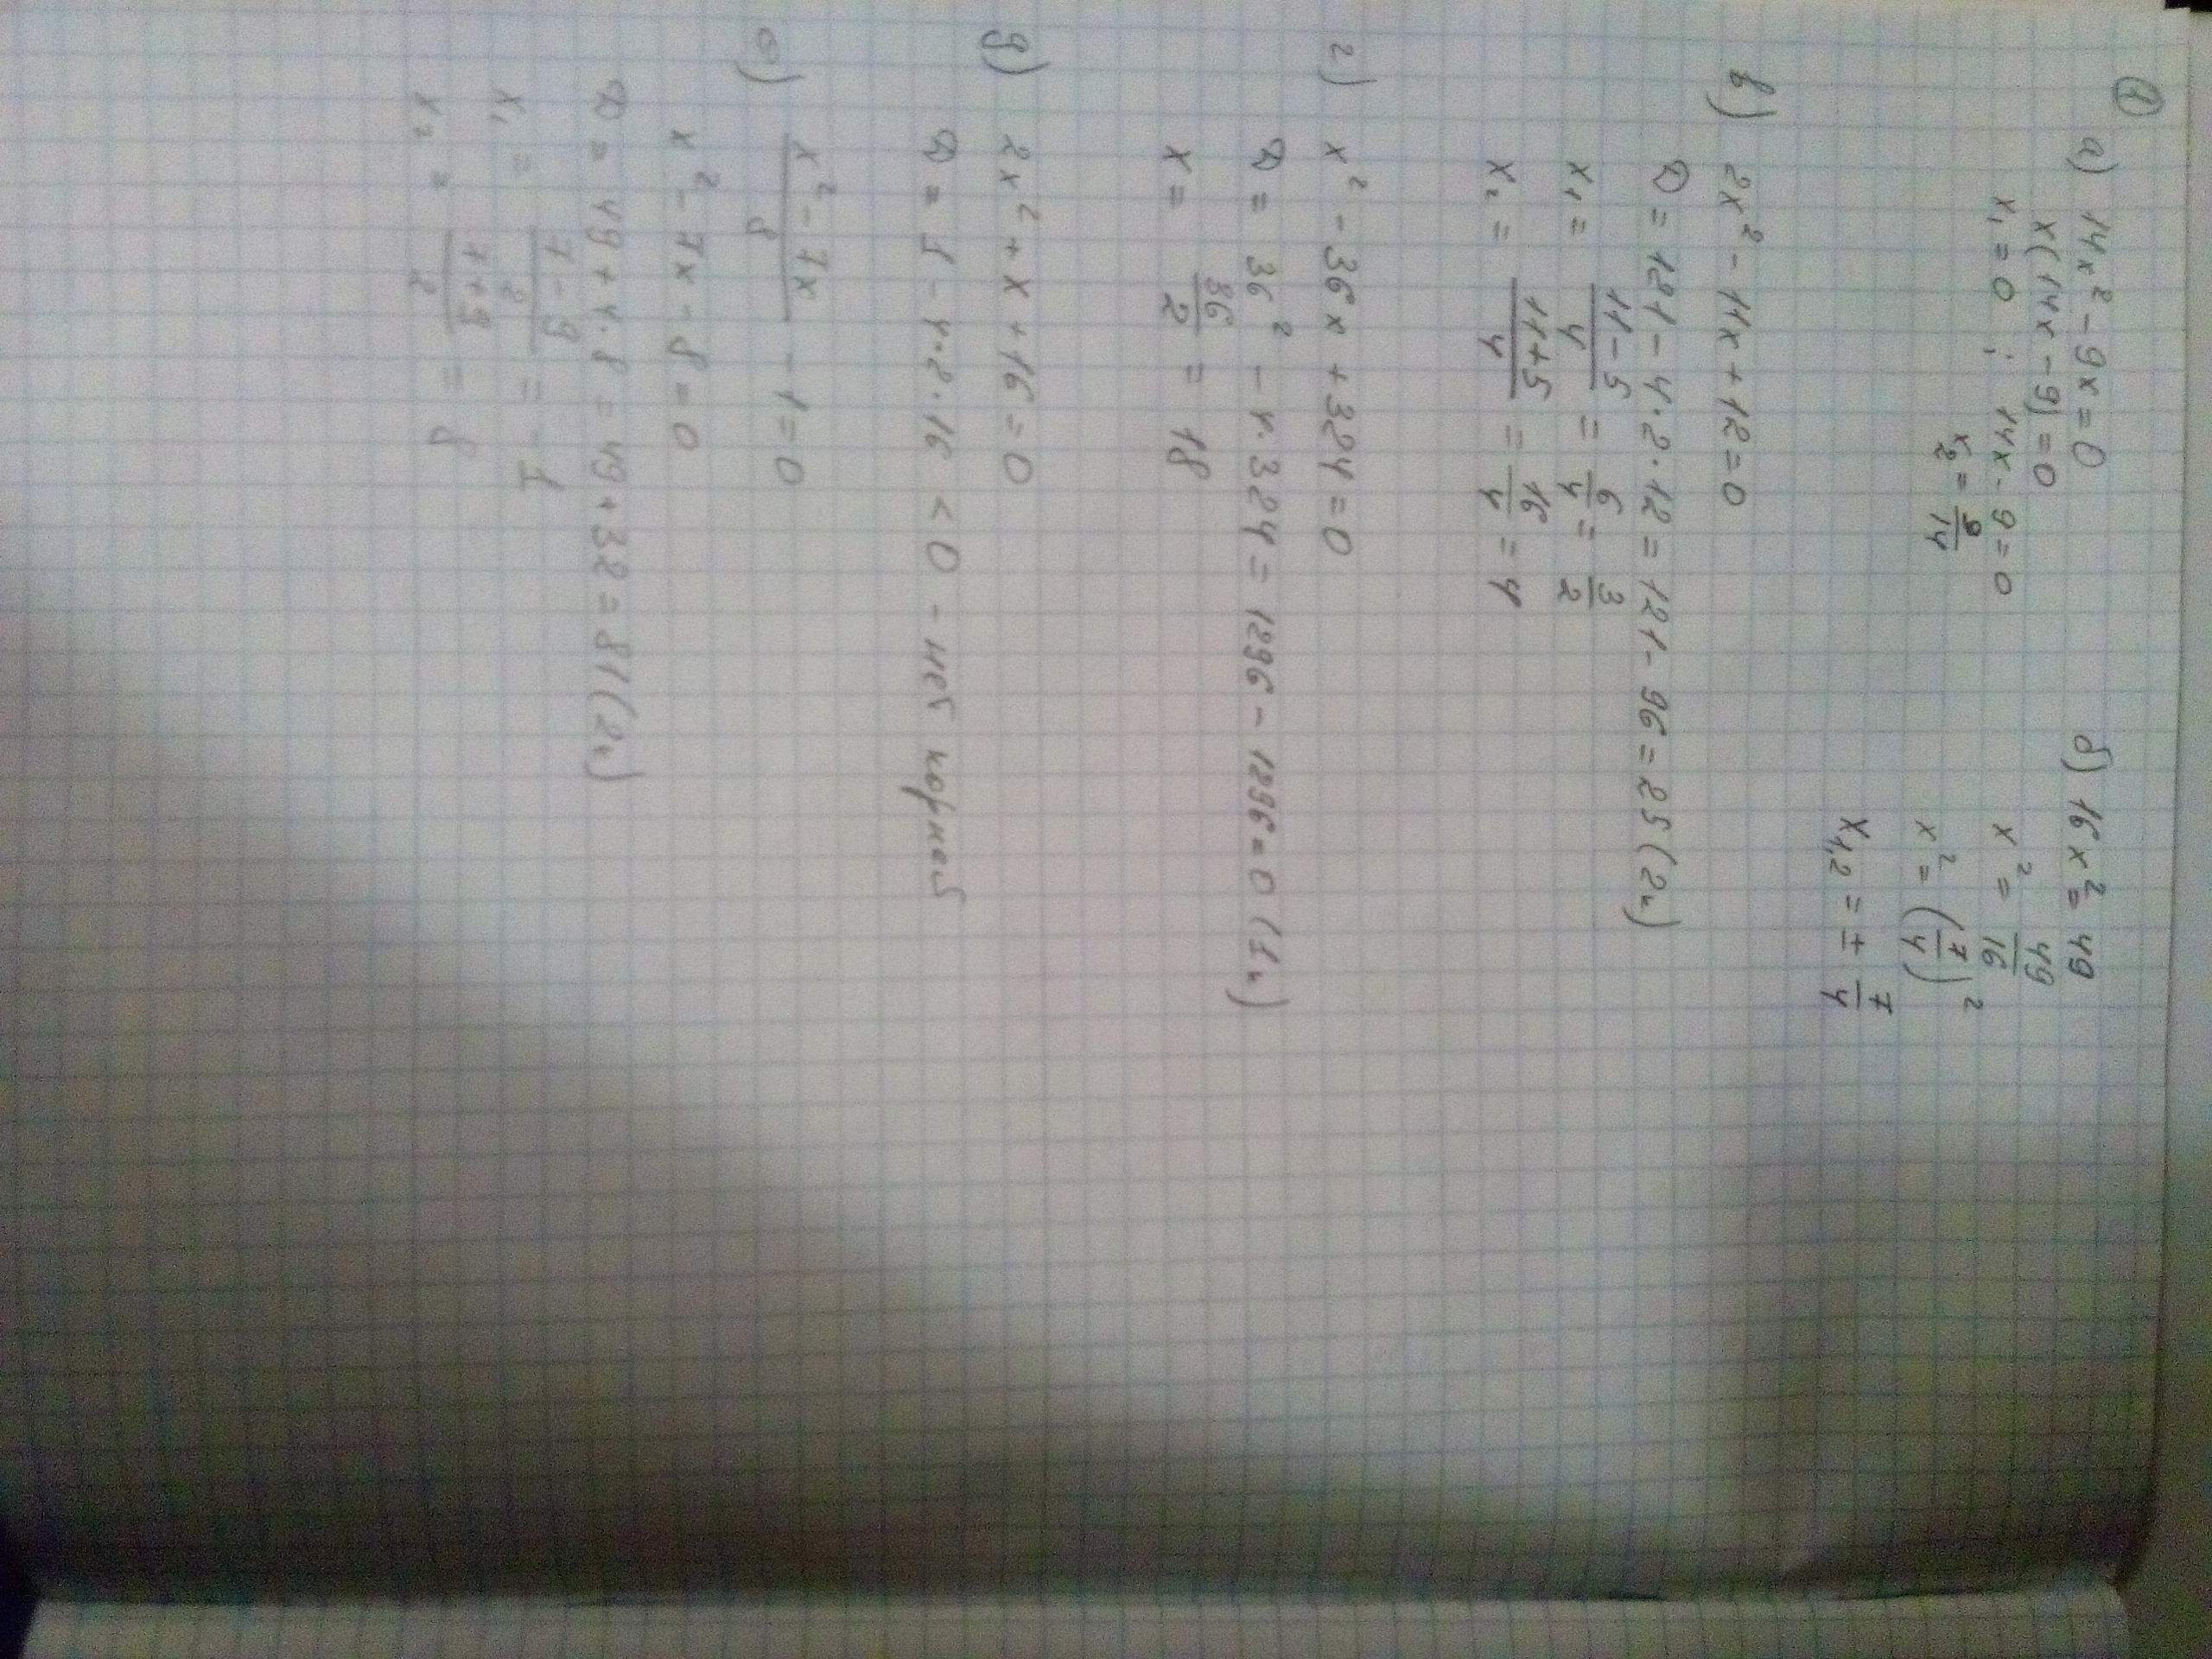 ① а) 14x² - 9x = 0
x(14x - 9) = 0
x₁ = 0 ; 14x - 9 = 0
x₂ = 9/14
б) 16x² = 49
x² = 49/16
x² = (7/4)²
x₁,₂ = ± 7/4
в) 2x² - 11x + 12 = 0
D = 121 - 4·2·12 = 121 - 96 = 25 (2к)
x₁ = (11 - 5)/4 = 6/4 = 3/2
x₂ = (11 + 5)/4 = 16/4 = 4
г) x² - 36x + 324 = 0
D = 36² - 4·324 = 1296 - 1296 = 0 (1к)
x = 36/2 = 18
д) 2x² + x + 16 = 0
D = 1 - 4·2·16 < 0 - нет корней
е) (x² - 7x)/8 - 1 = 0
x² - 7x - 8 = 0
D = 49 + 4·8 = 49 + 32 = 81 (2к)
x₁ = (7 - 9)/2 = -1
x₂ = (7 + 9)/2 = 8